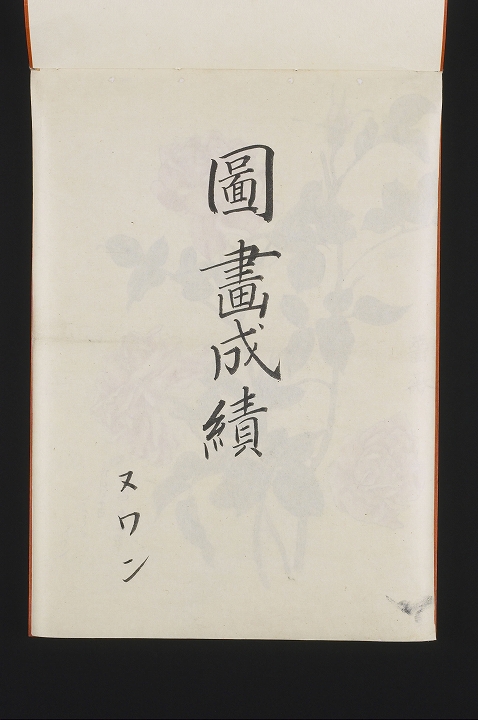 圖畫成績
ヌワン